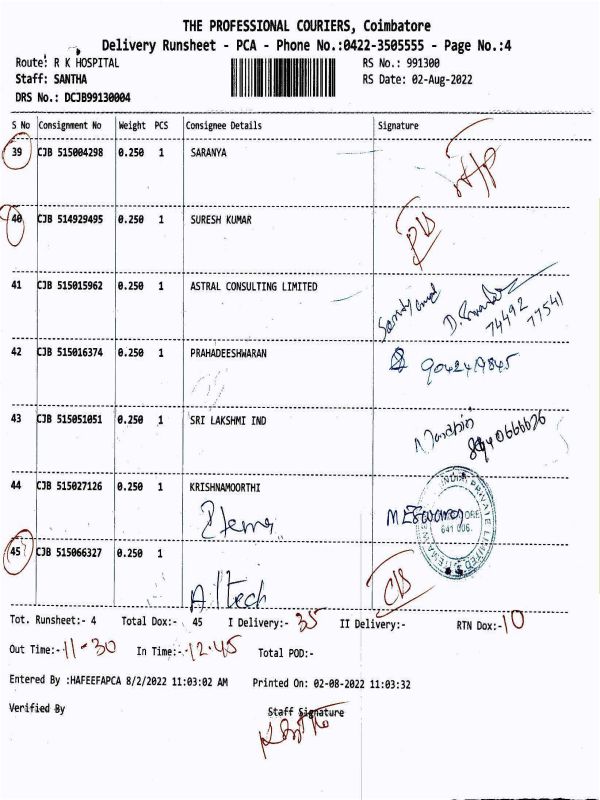 THE PROFESSIONAL COURIERS, Coimbatore
Delivery Runsheet - PCA - Phone No.:0422-3505555 - Page No.:4
Route: R K HOSPITAL RS No.: 991300
Staff: SANTHA RS Date: 02-Aug-2022
DRS No.: DCJB99130004
S No Consignment No Weight PCS Consignee Details Signature
39 CJB 515004298 0.250 1 SARANYA
40 CJB 514929495 0.250 1 SURESH KUMAR
41 CJB 515015962 0.250 1 ASTRAL CONSULTING LIMITED
74492
77541
42 CJB 515016374 0.250 1 PRAHADEESHWARAN
43 CJB 515051051 0.250 1 SRI LAKSHMI IND
44 CJB 515027126 0.250 1 KRISHNAMOORTHI
INDIA PRIVATE LIMITED
641 006.
45 CJB 515066327 0.250 1
Tot. Runsheet:- 4 Total Dox:- 45 I Delivery:- 35 II Delivery:- RTN Dox:- 10
Out Time:- 11-30 In Time:- 12.45 Total POD:-
Entered By :HAFEEFAPCA 8/2/2022 11:03:02 AM Printed On: 02-08-2022 11:03:32
Verified By Staff Signature